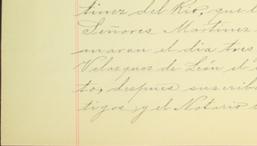 tinez del Rio, que l
Señores Martinez
maran el dia tres
Velazquez de León el
to, despues suscrib
tigos y el Notario